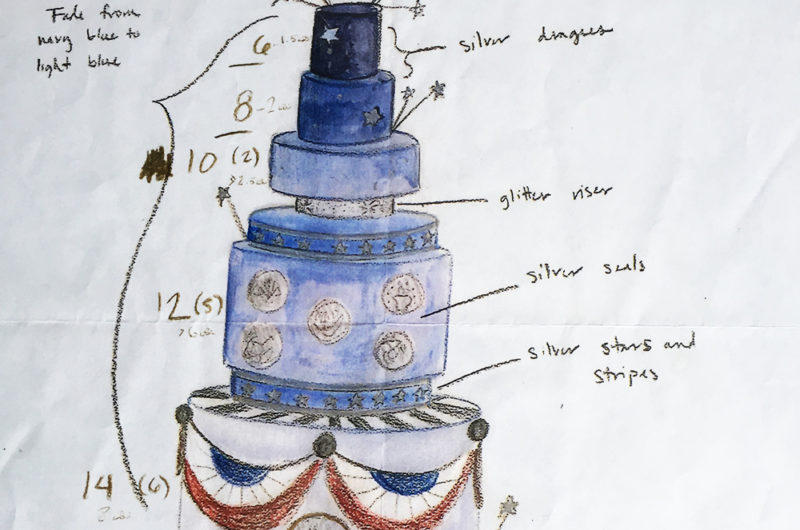 Fade from
navy blue to
light blue
6
silver dragees
8
10 (2)
glitter riser
silver seals
12 (5)
silver stars and
stripes
14 (6)